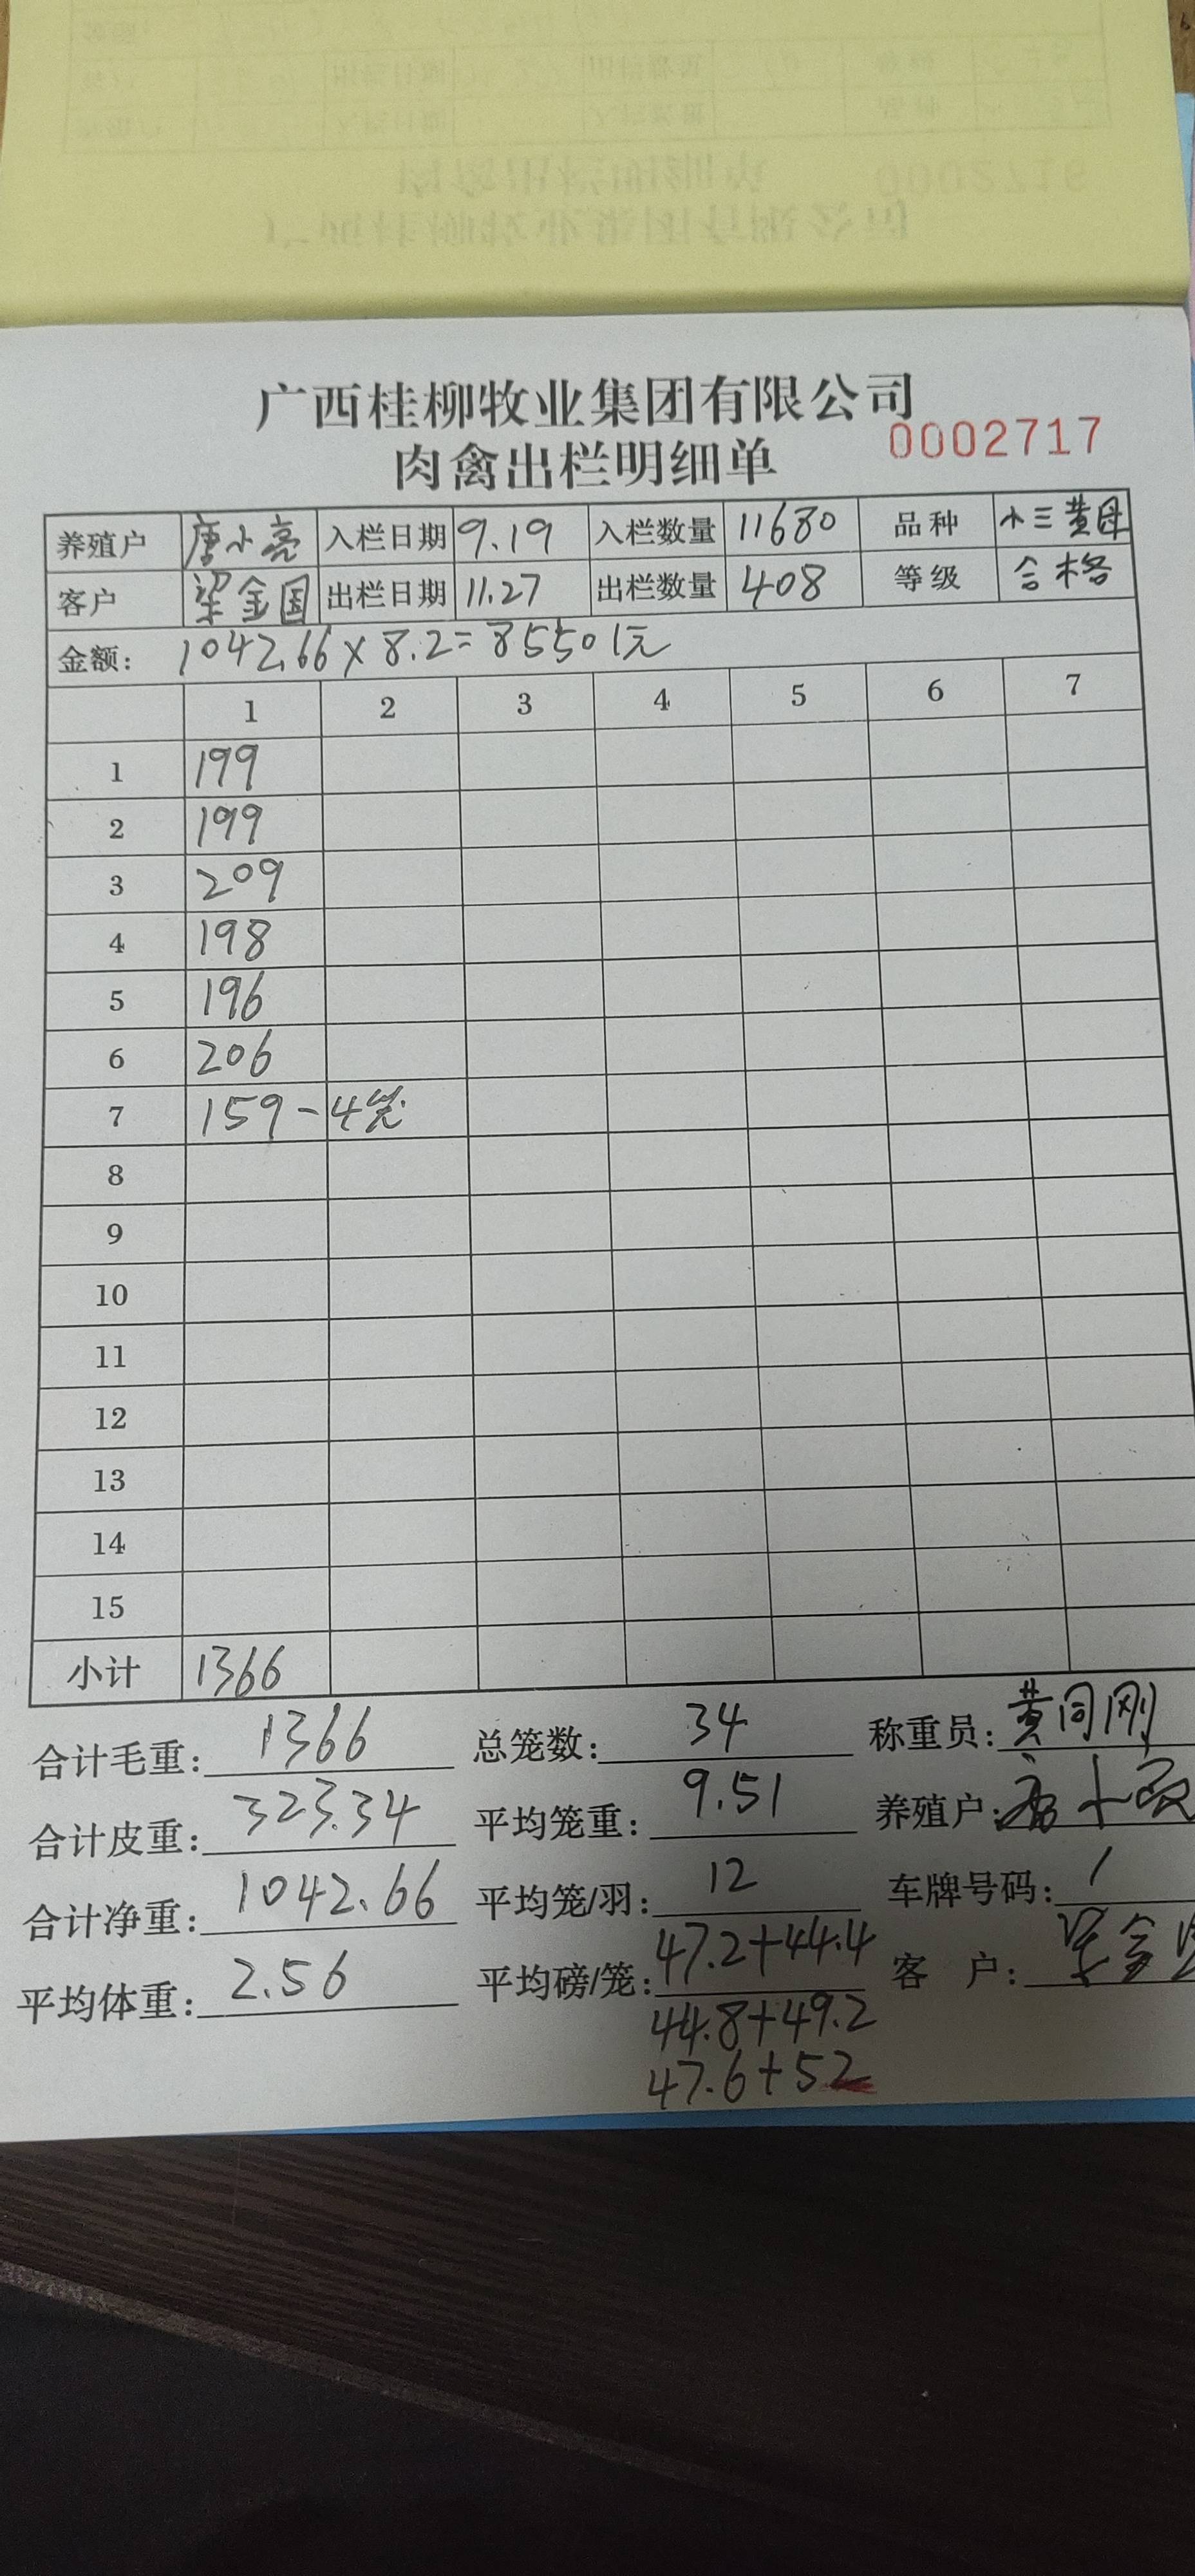 广西桂柳牧业集团有限公司
肉禽出栏明细单 0002717
养殖户 唐小亮 入栏日期 9.19 入栏数量 11680 品种 小三黄母
客户 梁金国 出栏日期 11.27 出栏数量 408 等级 合格
金额: 1042.66×8.2=85501元
1 2 3 4 5 6 7
1 199
2 199
3 209
4 198
5 196
6 206
7 159-4笼
8
9
10
11
12
13
14
15
小计 1366
合计毛重: 1366 总笼数: 34 称重员: 黄同刚
合计皮重: 323.34 平均笼重: 9.51 养殖户:
合计净重: 1042.66 平均笼/羽: 12 车牌号码: /
平均体重: 2.56 平均磅/笼: 47.2+44.4 客 户: 梁金
44.8+49.2
47.6+52